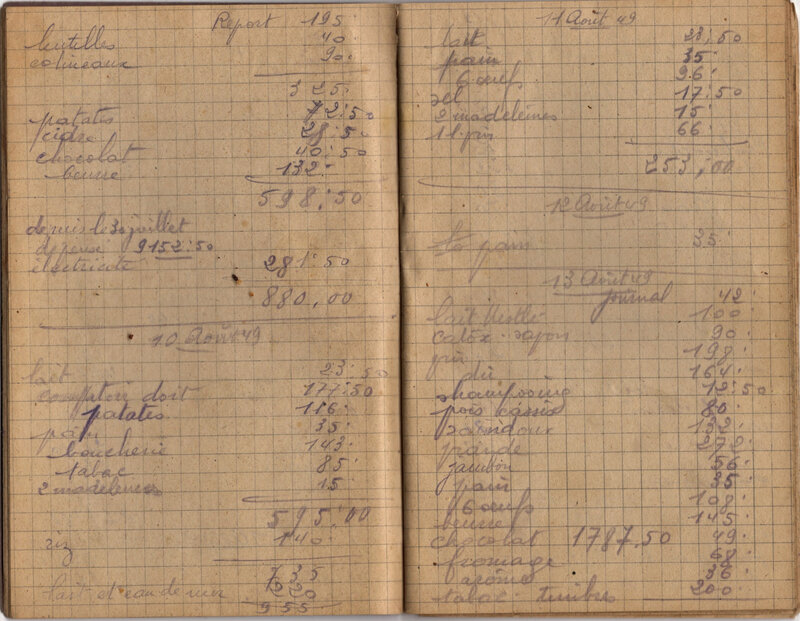 Report 195
lentilles 40
90
325
patates 72:50
cidre 28:50
chocolat 40:50
beurre 132
598:50
depuis le 30 juillet
9152:50
électricité 281:50
880,00
10 Août 49
lait 23:50
doit 177:50
patates 116
pain 35
boucherie 143
tabac 85
2 madeleines 15
595:00
riz 140
735
lait et eau de mer 220
955
11 Août 49
lait 23:50
pain 35
6 oeufs 96
sel 17:50
2 madeleines 15
66
253,00
12 Août 49
pain 35
13 Août 49
journal 42
lait 100
savon 90
198
164
shampooing 12:50
pois cassés 80
saindoux 132
272
jambon 56
pain 35
6 oeufs 108
beurre 145
chocolat 1787,50 49
fromage 68
arôme 36
tabac timbres 200